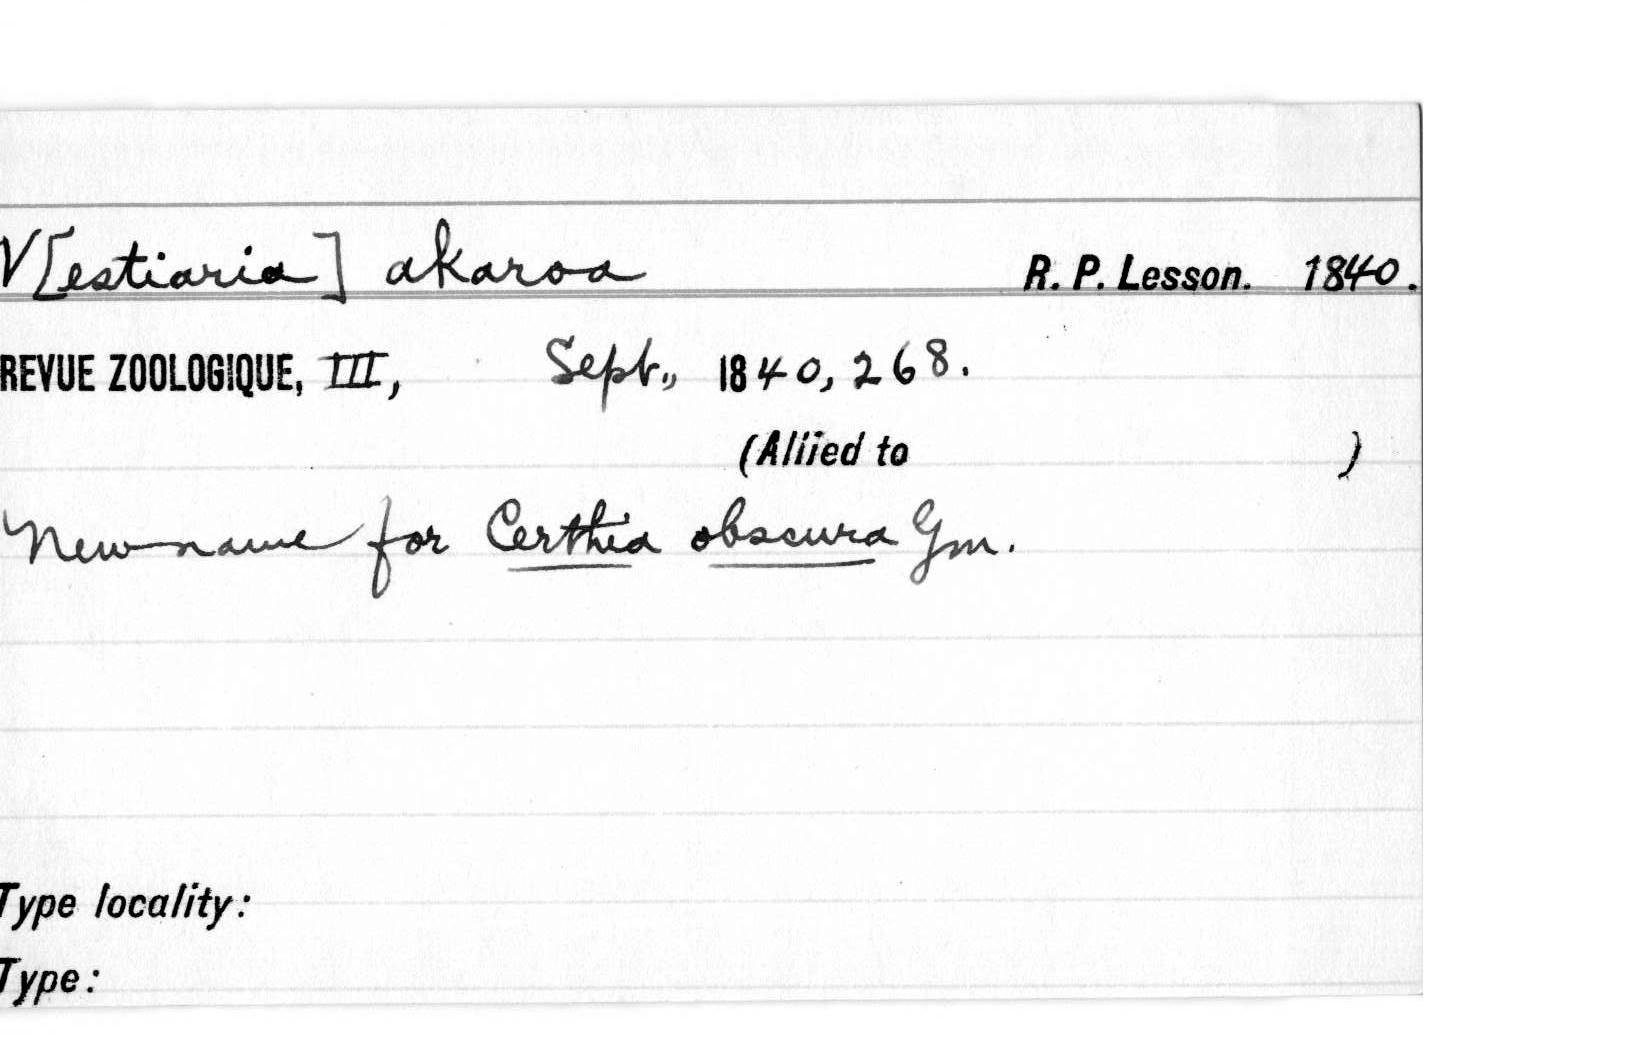 V[estiaria] akaroa R. P. Lesson. 1840.
REVUE ZOOLOGIQUE, III, Sept., 1840, 268.
(Allied to )
New name for Certhia obscura Gm.
Type locality:
Type: